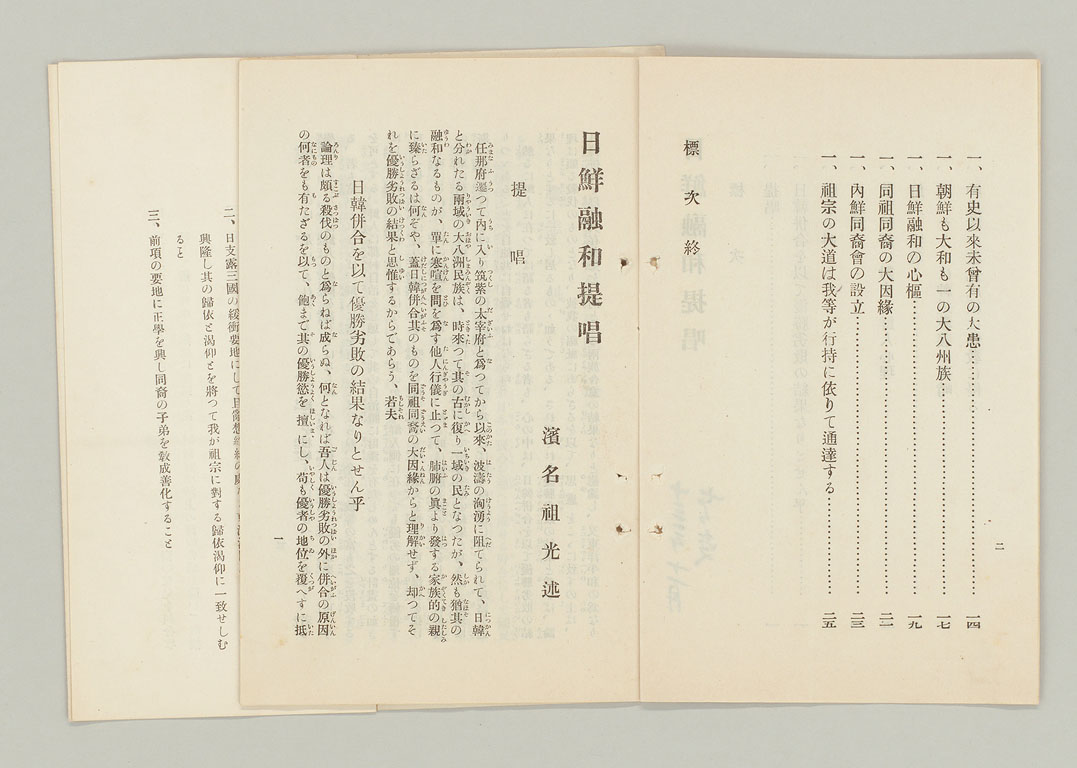 二
一、有史以來未曾有の大患……………………一四
一、朝鮮も大和も一の大八州族……………………一七
一、日鮮融和の心樞……………………一九
一、同祖同裔の大因緣……………………二一
一、內鮮同裔會の設立……………………二三
一、祖宗の大道は我等が行持に依りて通達する…………二五
標次終
日鮮融和提唱
濱名祖光述
提唱
任那府遷つて內に入り筑紫の太宰府と爲つてから以來、波濤の洶湧に阻てられて、日韓
と分れたる兩域の大八洲民族は、時來つて其の古に復り一域の民となつたが、然も猶其の
融和なるものが、單に寒喧を問を爲す他人行儀に止つて、肺腑の眞より發する家族的の親
に臻らざるは何ぞや、蓋日韓併合其のものを同祖同裔の大因緣からと理解せず、却つてそ
れを優勝劣敗の結果と思惟するからであらう、若夫
日韓併合を以て優勝劣敗の結果なりとせん乎
論理は頗る殺伐のものと爲らねば成らぬ、何となれば吾人は優勝劣敗の外に併合の原因
の何者をも有たざるを以て、飽まで其の優勝慾を擅にし、苟も優者の地位を覆へすに抵
一
二、日支露三國の緩衝要地にして
興隆し其の歸依と渴仰とを將つて我が祖宗に對する歸依渴仰に一致せしむ
ると
三、前項の要地に正學を興し同裔の子弟を敎成善化すること